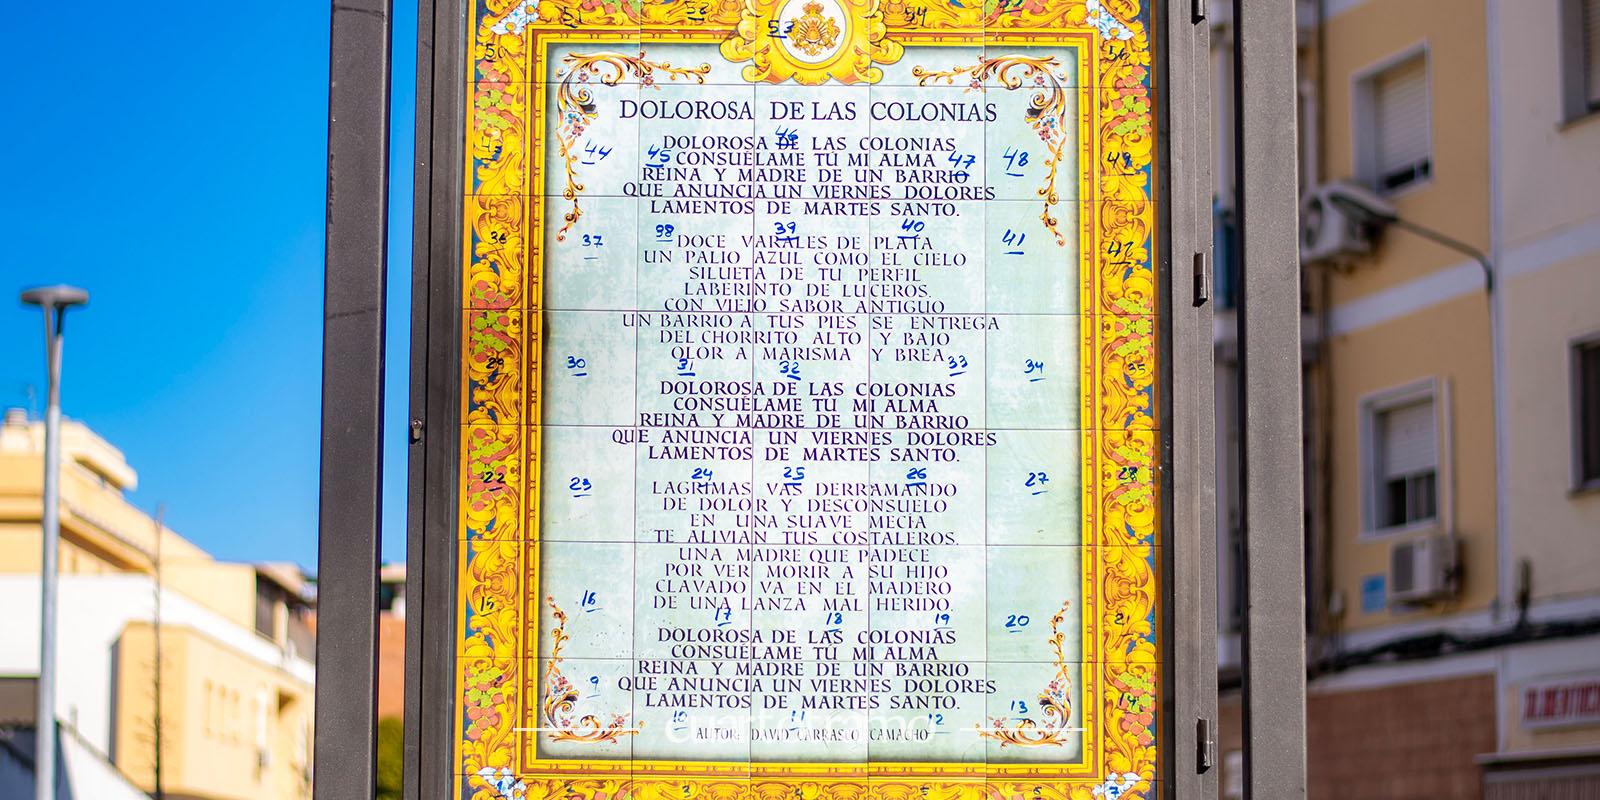 51 52 53 54 55
50 56
DOLOROSA DE LAS COLONIAS
46
DOLOROSA DE LAS COLONIAS
43 44 45 CONSUÉLAME TÚ MI ALMA 47 48 49
REINA Y MADRE DE UN BARRIO
QUE ANUNCIA UN VIERNES DOLORES
LAMENTOS DE MARTES SANTO.
36 37 38 39 40 41 42
DOCE VARALES DE PLATA
UN PALIO AZUL COMO EL CIELO
SILUETA DE TU PERFIL
LABERINTO DE LUCEROS
CON VIEJO SABOR ANTIGUO
UN BARRIO A TUS PIES SE ENTREGA
DEL CHORRITO ALTO Y BAJO
OLOR A MARISMA Y BREA
29 30 31 32 33 34 35
DOLOROSA DE LAS COLONIAS
CONSUÉLAME TÚ MI ALMA
REINA Y MADRE DE UN BARRIO
QUE ANUNCIA UN VIERNES DOLORES
LAMENTOS DE MARTES SANTO.
22 23 24 25 26 27 28
LAGRIMAS VAS DERRAMANDO
DE DOLOR Y DESCONSUELO
EN UNA SUAVE MECIA
TE ALIVIAN TUS COSTALEROS.
UNA MADRE QUE PADECE
POR VER MORIR A SU HIJO
CLAVADO VA EN EL MADERO
DE UNA LANZA MAL HERIDO.
15 16 17 18 19 20 21
DOLOROSA DE LAS COLONIAS
CONSUÉLAME TÚ MI ALMA
REINA Y MADRE DE UN BARRIO
QUE ANUNCIA UN VIERNES DOLORES
LAMENTOS DE MARTES SANTO.
9 10 11 12 13 14
cuartotramo
AUTOR: DAVID CARRASCO CAMACHO
7